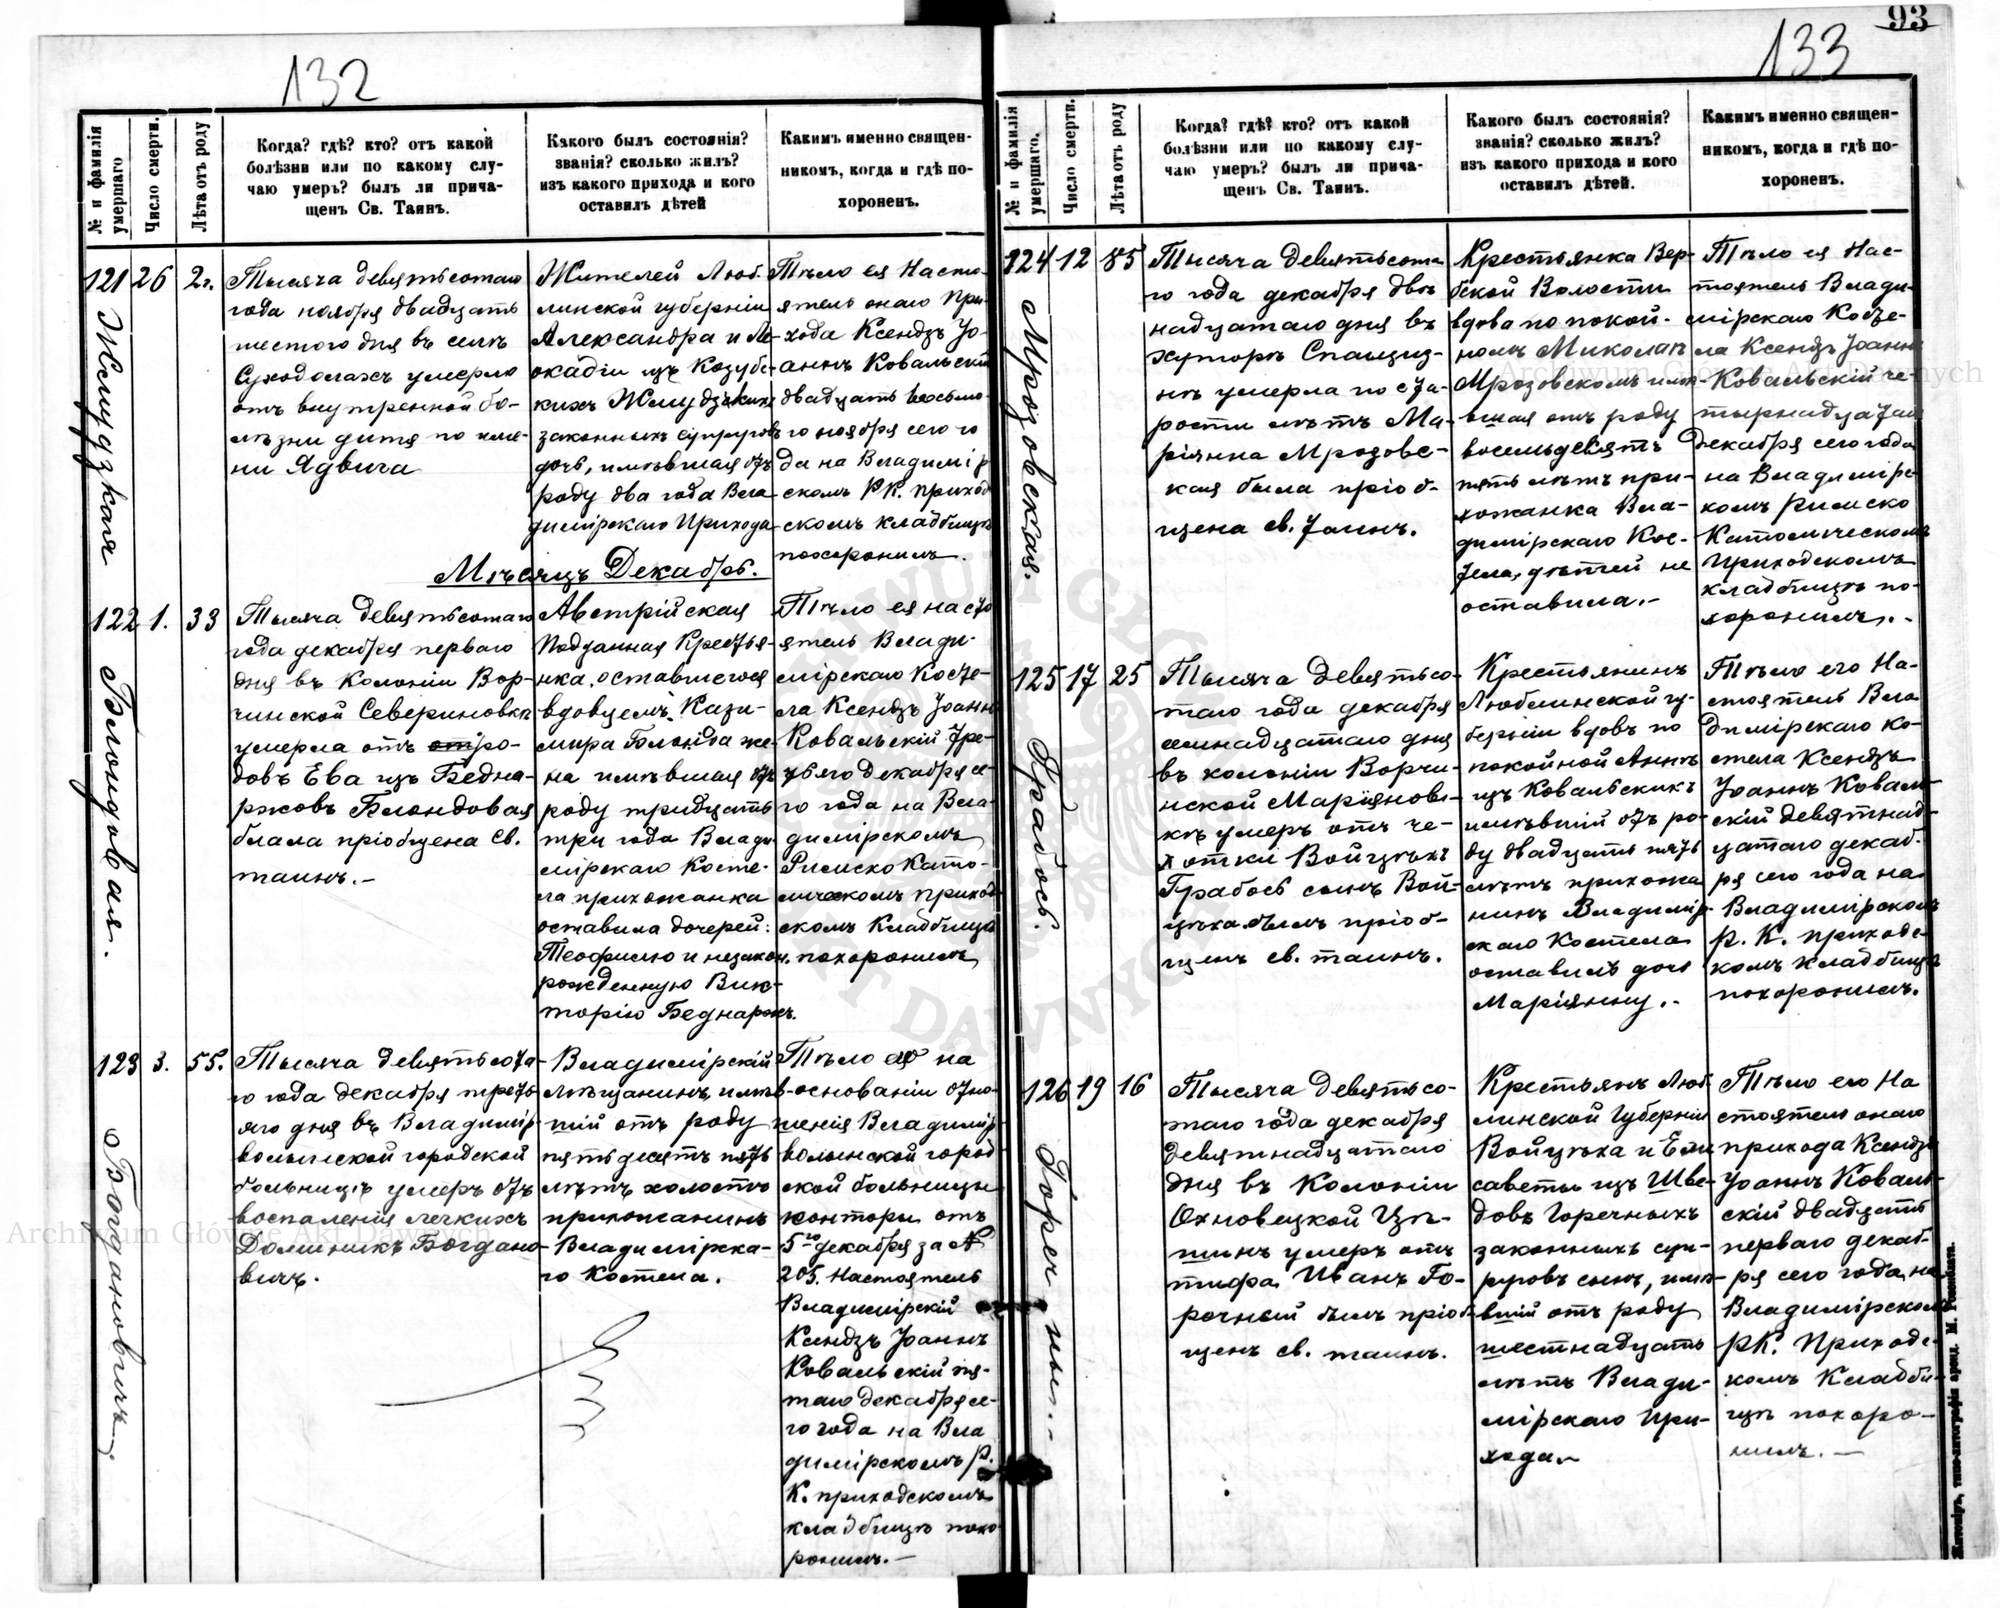 132
№ и фамилія умершаго
Число смерти.
Лѣта отъ роду
Когда? гдѣ? кто? отъ какой
болѣзни или по какому слу-
чаю умеръ? былъ ли прича-
щенъ Св. Таинъ.
Какого былъ состоянія?
званія? сколько жилъ?
изъ какого прихода и кого
оставилъ дѣтей
Какимъ именно священ-
никомъ, когда и гдѣ по-
хороненъ.
121
Жмудзкая
26
2 г.
Тысяча девятьсотаго
года ноября двадцать
шестого дня въ селѣ
Суходолахъ умерло
отъ внутренной бо-
лѣзни дитя по име-
ни Ядвига
Жителей Люб-
линской губерніи
Александра и Ле-
окадіи изъ Козубс-
кихъ Жмудзкихъ
законныхъ супруговъ
дочь, имѣвшая отъ
роду два года Вла-
димірскаго Прихода
Тѣло ея Насто-
ятель онаго При-
хода Ксендзъ Іо-
аннъ Ковальскій
двадцать восьмо-
го ноября сего го
да на Владимір
скомъ РК. приход
скомъ кладбищѣ
похоронилъ.
Мѣсяцъ Декабрь.
122
Блондовая.
1.
33
Тысяча девятьсотаго
года декабря перваго
дня въ Колоніи Вор-
чинской Севериновкѣ
умерла отъ ро-
довъ Ева изъ Бедна-
ржовъ Блондовая
была пріобщена Св.
таинъ.-
Австрійская
Подданная Крестья-
нка, оставшегося
вдовцемъ Кази-
мира Блонда же-
на имѣвшая отъ
роду тридцать
три года Влади
мірскаго Косте-
ла прихожанка
оставила дочерей:
Теофилю и незакон.
рожденную Вик-
торію Беднаржъ.
Тѣло ея насто
ятель Влади-
мірскаго Косте-
ла Ксендзъ Іоаннъ
Ковальскій тре-
тьяго декабря се-
го года на Вла-
димірскомъ
Римско Като-
лическомъ приход
скомъ Кладбищѣ
похоронилъ
123
Богдановичъ.
3.
55.
Тысяча девятьсота-
го года декабря треть-
яго дня въ Владимір
волынской городской
больницѣ умеръ отъ
воспаленія легкихъ
Доминикъ Богдано-
вичъ.
Владимірскій
Мѣщанинъ, имѣв-
шій отъ роду
пятьдесятъ пять
лѣтъ холостъ
прихожанинъ
Владимірска-
го Костела.
Тѣло его на
основаніи отно-
шенія Владимір-
волынской город
ской больницы
конторы отъ
5го декабря за №
205. Настоятель
Владимірскій
Ксендзъ Іоаннъ
Ковальскій пя-
таго декабря се-
го года на Вла
димірскомъ Р.
К. приходскомъ
кладбищѣ похо-
ронилъ.-
93
133
№ и фамилія умершаго.
Число смерти.
Лѣта отъ роду
Когда? гдѣ? кто? отъ какой
болѣзни или по какому слу-
чаю умеръ? былъ ли прича-
щенъ Св. Таинъ.
Какого былъ состоянія?
званія? сколько жилъ?
изъ какого прихода и кого
оставилъ дѣтей.
Какимъ именно священ-
никомъ, когда и гдѣ по-
хороненъ.
124
Мрозовская.
12
85
Тысяча девятьсота
го года декабря две
надцатаго дня въ
хуторѣ
умерла по ста-
рости лѣтъ Ма-
ріянна Мрозовс-
кая была пріоб-
щена св. таинъ.
Крестьянка Вер-
бской Волости
вдова по покой-
номъ Миколаѣ
Мрозовскомъ имѣ-
вшая отъ роду
восемьдесятъ
пять лѣтъ при-
хожанка Вла-
димірскаго Кос-
тела, дѣтей не
оставила.-
Тѣло ея Нас-
тоятель Влади-
мірскаго Косте-
ла Ксендзъ Іоаннъ
Ковальскій че-
тырнадцатаго
декабря сего года
на Владимірс-
комъ Римско
Католическомъ
Приходскомъ
кладбищѣ по-
хоронилъ.-
125
Грабось.
17
25
Тысяча девятьсо-
таго года декабря
семнадцатаго дня
въ колоніи Ворчи-
нской Маріянов-
кѣ умеръ отъ че-
хотки Войцѣхъ
Грабось сынъ Вой-
цѣха былъ пріоб-
щенъ св. таинъ.
Крестьянинъ
Люблинской гу-
берніи вдовъ по
покойной Аннѣ
изъ Ковальскихъ
имѣвшій отъ ро-
ду двадцать пять
лѣтъ прихожа
нинъ Владимір-
скаго Костела
оставилъ дочь
Маріянну.-
Тѣло его На-
стоятель Вла
димірскаго Ко-
стела Ксендзъ
Іоаннъ Коваль-
скій девятнад-
цатаго декаб-
ря сего года на
Владимірскомъ
Р. К. приходс-
комъ кладбищѣ
похоронилъ.
126
Горечный.-
19
16
Тысяча девятьсо-
таго года декабря
девятнадцатаго
дня въ Колоніи
Охновецкой
умеръ отъ
тифа Иванъ Го-
речный былъ пріоб
щенъ св. таинъ.
Крестьянъ Люб-
линской Губерніи
Войцѣха и Ели
саветы изъ Шве-
довъ Горечныхъ
законныхъ суп-
руговъ сынъ, имѣ-
вшій отъ роду
шестнадцать
лѣтъ Влади-
мірскаго При-
хода.
Тѣло его На
стоятель онаго
прихода Ксендзъ
Іоаннъ Коваль-
скій двадцать
перваго декаб-
ря сего года на
Владимірскомъ
РК. Приходс-
комъ Кладби-
щѣ похоро-
нилъ.-
Житоміръ, типо-литографія аренд. М.
Archiwum Główne Akt Dawnych
Archiwum Główne Akt Dawnych